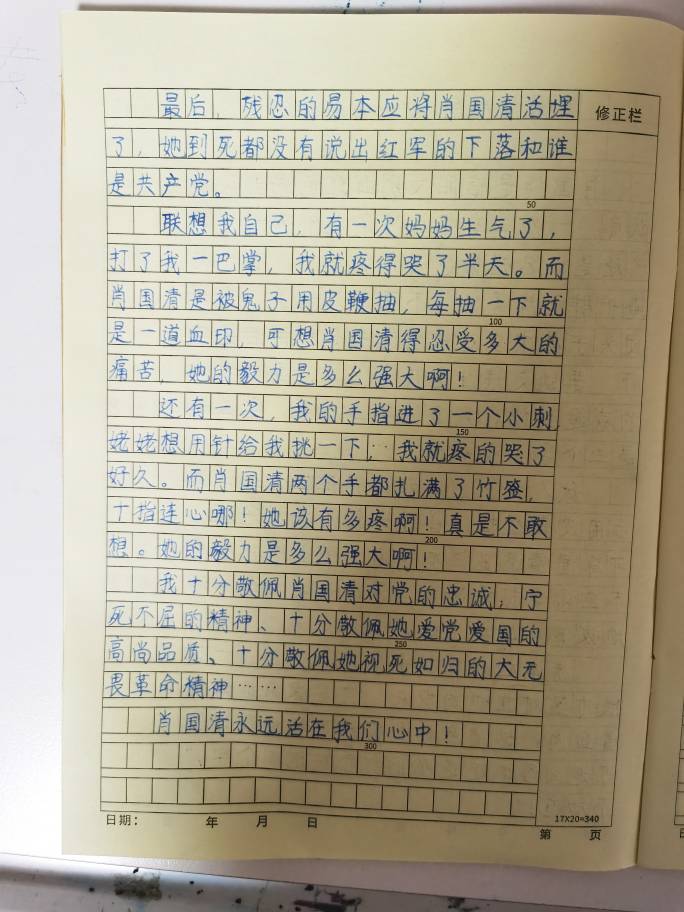 最后，残忍的易本应将肖国清活埋
修正栏
了，她到死都没有说出红军的下落和谁
是共产党。
50
联想我自己，有一次妈妈生气了，
打了我一巴掌，我就疼得哭了半天。而
肖国清是被鬼子用皮鞭抽，每抽一下就
100
是一道血印，可想肖国清得忍受多大的
痛苦，她的毅力是多么强大啊！
还有一次，我的手指进了一个小刺，
150
姥姥想用针给我挑一下，我就疼的哭了
好久。而肖国清两个手都扎满了竹签，
十指连心哪！她该有多疼啊！真是不敢
200
想。她的毅力是多么强大啊！
我十分敬佩肖国清对党的忠诚；宁
死不屈的精神、十分敬佩她爱党爱国的
250
高尚品质、十分敬佩她视死如归的大无
畏革命精神……
肖国清永远活在我们心中！
300
日期： 年 月 日
17X20=340
第 页